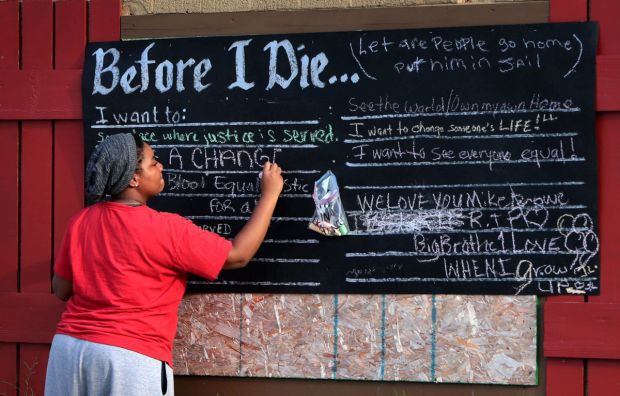 Before I Die... (Let are People go home
Put him in Jail)
I want to:
place where justice is served.
A CHANGE
Blood Equal
FOR a
See the World/Own my own Home
I want to change someone's LIFE!!
I want to see everyone equal!
WE LOVE YOU Mike Browe
R.I.P
Big Brothe I LOVE
WHEN I grow